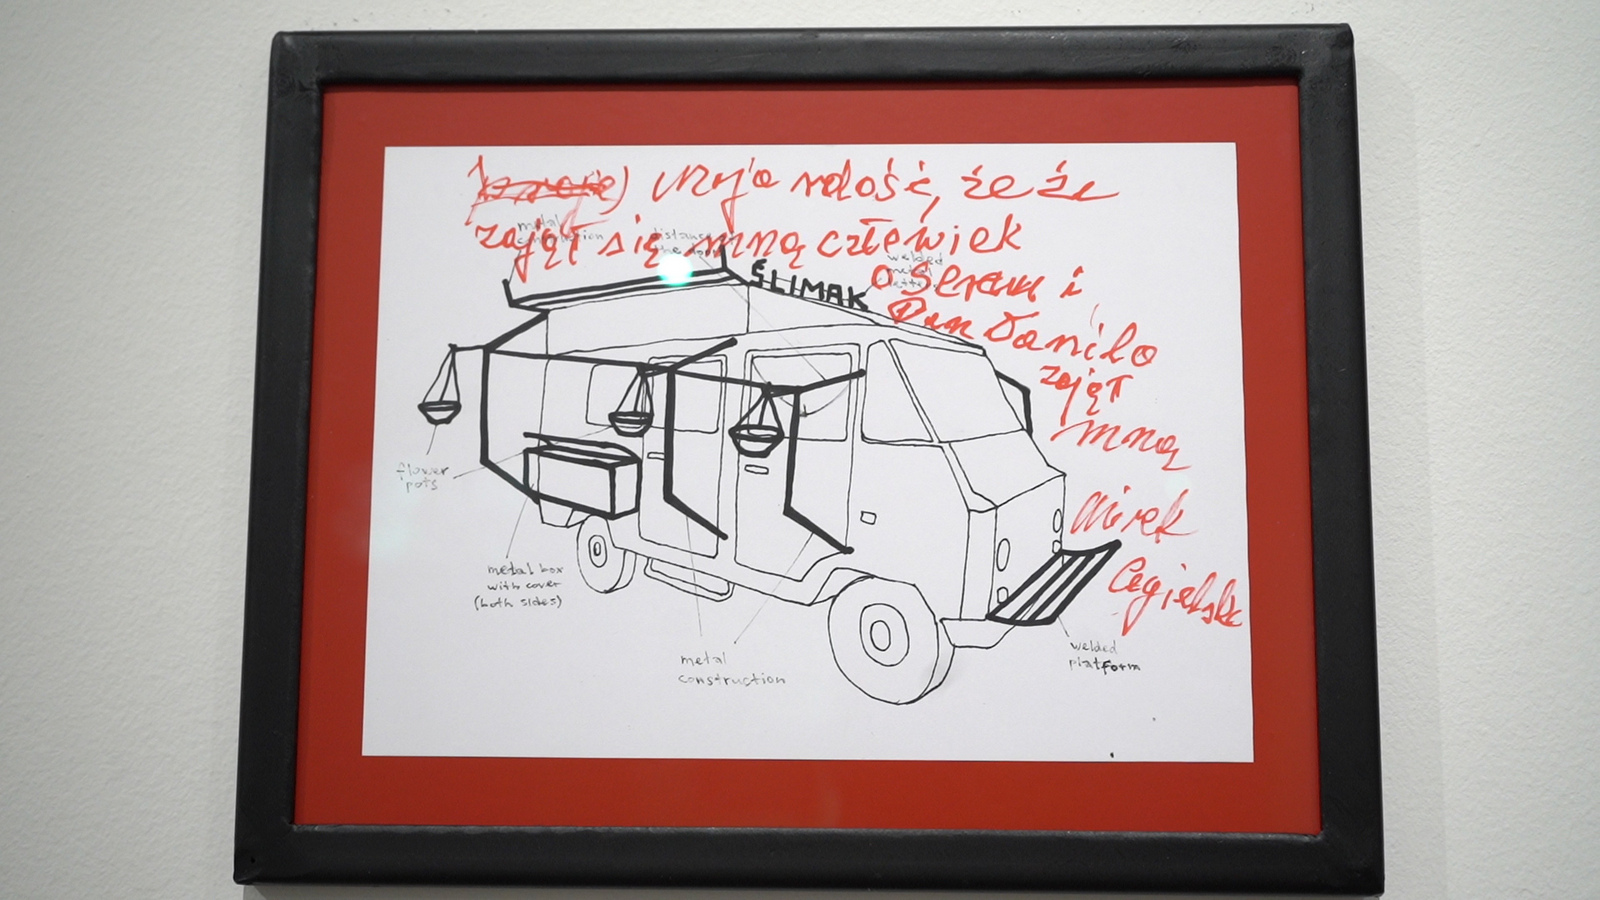 moja radość, że że
zajął się mną człowiek
o Sercu i
Pan Daniło
zajął
mną
Mirek
metal
construction
distance
the door
welded
metal
ŚLIMAK
flower
pots
metal box
with cover
(both sides)
metal
construction
welded
platform